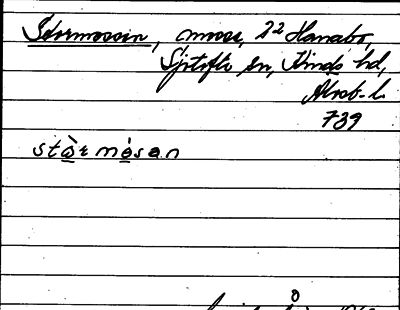 Stormossen, mosse, 2² Hanabo,
Sjötofta sn, Kinds hd,
Älvsb. l.
739
stò̲rmò̲san